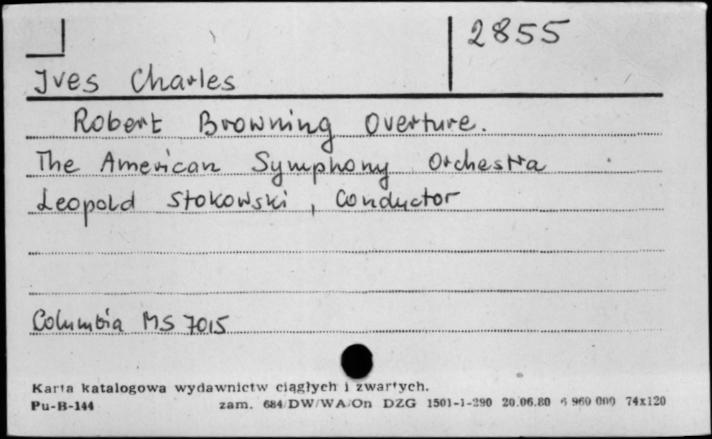 2855
Ives Charles
Robert Browning Overture.
The American Symphony Orchestra
Leopold Stokowski, Conductor
Columbia MS 7015
Karta katalogowa wydawnictw ciągłych i zwartych.
Pu-B-144 zam. 684/DW/WA/On DZG 1501-1-290 20.06.80 6 960 000 74x120